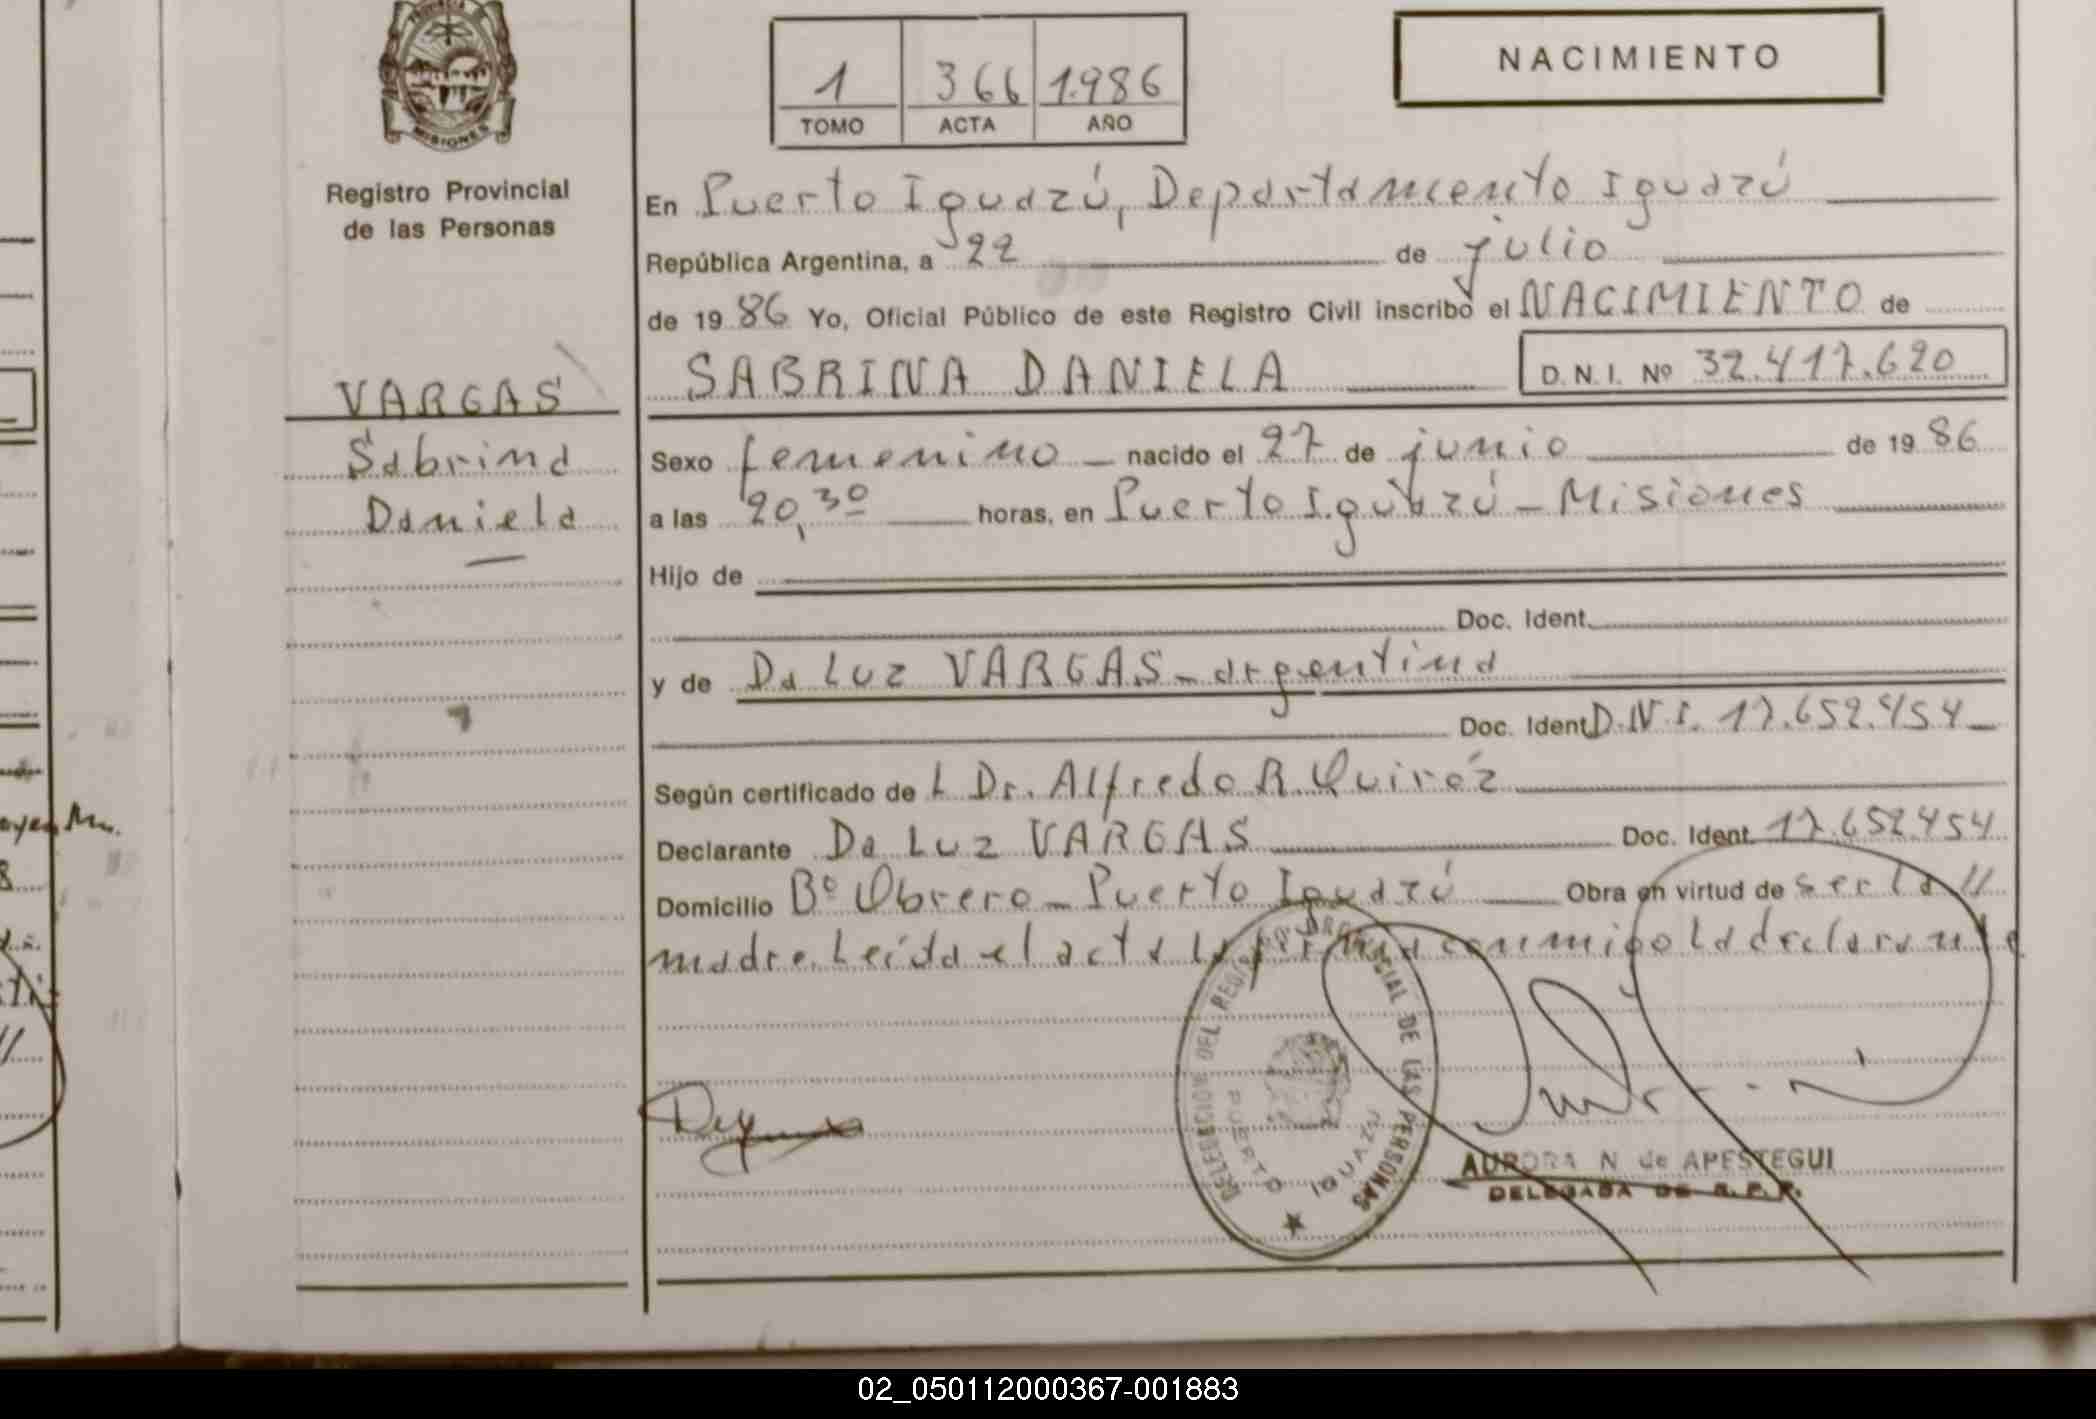 PROVINCIA
MISIONES
Registro Provincial
de las Personas
VARGAS
Sabrina
Daniela
1 366 1.986
TOMO ACTA AÑO
NACIMIENTO
En Puerto Iguazú, Departamento Iguazú
República Argentina, a 22 de julio
de 1986 Yo, Oficial Público de este Registro Civil inscribo el NACIMIENTO de
SABRINA DANIELA D. N. I. Nº 32.417.620
Sexo femenino nacido el 27 de junio de 1986
a las 20,30 horas, en Puerto Iguazú - Misiones
Hijo de
Doc. Ident.
y de Da Luz VARGAS - argentina
Doc. Ident D.N.I. 17.652.454
Según certificado de l Dr. Alfredo R. Quiróz
Declarante Da Luz VARGAS Doc. Ident. 17.652.454
Domicilio Bº Obrero - Puerto Iguazú Obra en virtud de ser la //
madre. Leída el acta la firma conmigo la declarante
DELEGACION DEL REGISTRO PROVINCIAL DE LAS PERSONAS
PUERTO IGUAZU
AURORA N de APESTEGUI
DELEGADA DE R. P. P.
02_050112000367-001883